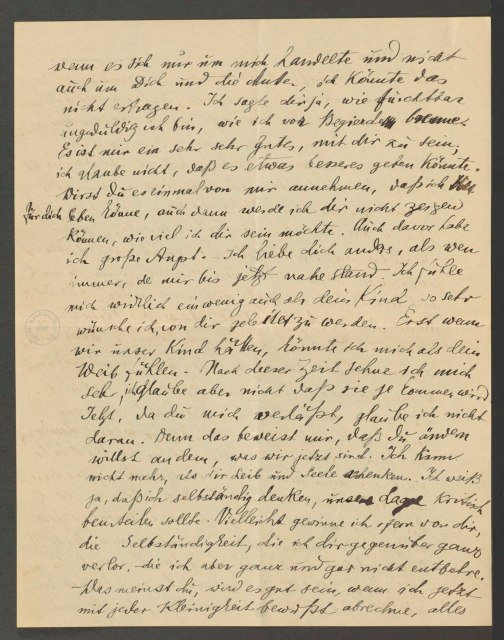 wenn es sich nur um mich handelte und nicht
auch um Dich und die Mutter, ich könnte das
nicht ertragen. Ich sagte dir ja, wie furchtbar
ungeduldig ich bin, wie ich vor Begierde brenne.
Es ist mir ein sehr sehr Gutes, mit dir zu sein,
ich glaube nicht, daß es etwas besseres geben könnte.
Wirst du es einmal von mir annehmen, daß ich
für dich leben könne, auch dann werde ich dir nicht zeigen
können, wie viel ich dir sein möchte. Auch davor habe
ich große Angst. - Ich liebe dich anders, als wen
immer, de mir bis jetzt nahe stand. Ich fühle
mich wirklich ein wenig auch als dein Kind, so sehr
wünsche ich, von dir geleitet zu werden. Erst wenn
wir unser Kind hätten, könnte ich mich als dein
Weib fühlen. - Nach dieser Zeit sehne ich mich
sehr, ich glaube aber nicht daß sie je kommen wird
Jetzt, da du mich verläßt, glaube ich nicht
daran. Denn das beweist nur, daß du ändern
willst an dem, was wir jetzt sind. Ich kann
nicht mehr, als dir Leib und Seele schenken. Ich weiß
ja, daß ich selbständig denken, unsere Lage kritisch
beurteilen sollte. Vielleicht gewinne ich, fern von dir,
die Selbständigkeit, die ich dir gegenüber ganz
verlor, - die ich aber ganz und gar nicht entbehre.
Was meinst du, wird es gut sein, wenn ich jetzt
mit jeder Kleinigkeit bewußt abrechne, alles